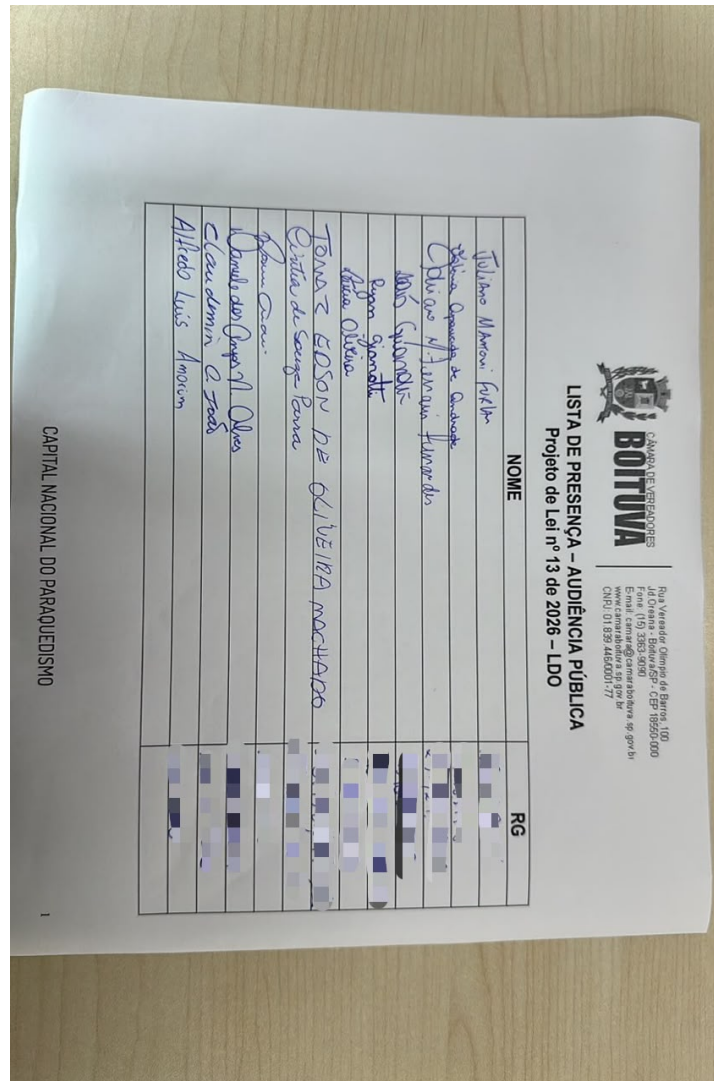 CÂMARA DE VEREADORES
BOITUVA
Rua Vereador Olímpio de Barros, 100
Jd.Oreana - Boituva/SP - CEP 18550-000
Fone: (15) 3363-9090
E-mail: camara@camaraboituva.sp.gov.br
www.camaraboituva.sp.gov.br
CNPJ: 01.839.446/0001-77
LISTA DE PRESENÇA – AUDIÊNCIA PÚBLICA
Projeto de Lei nº 13 de 2026 – LDO
NOME RG
Juliano
Aparecida de Andrade
Adriano M. Ferraris Fernandes
Ryan Gianotti
Oliveira
TOMAZ EDSON DE OLIVEIRA MACHADO
Cintia de Souza Parra
Daniele dos Anjos N. Alves
Claudemir A. João
Alfredo Luis Amorim
CAPITAL NACIONAL DO PARAQUEDISMO
1